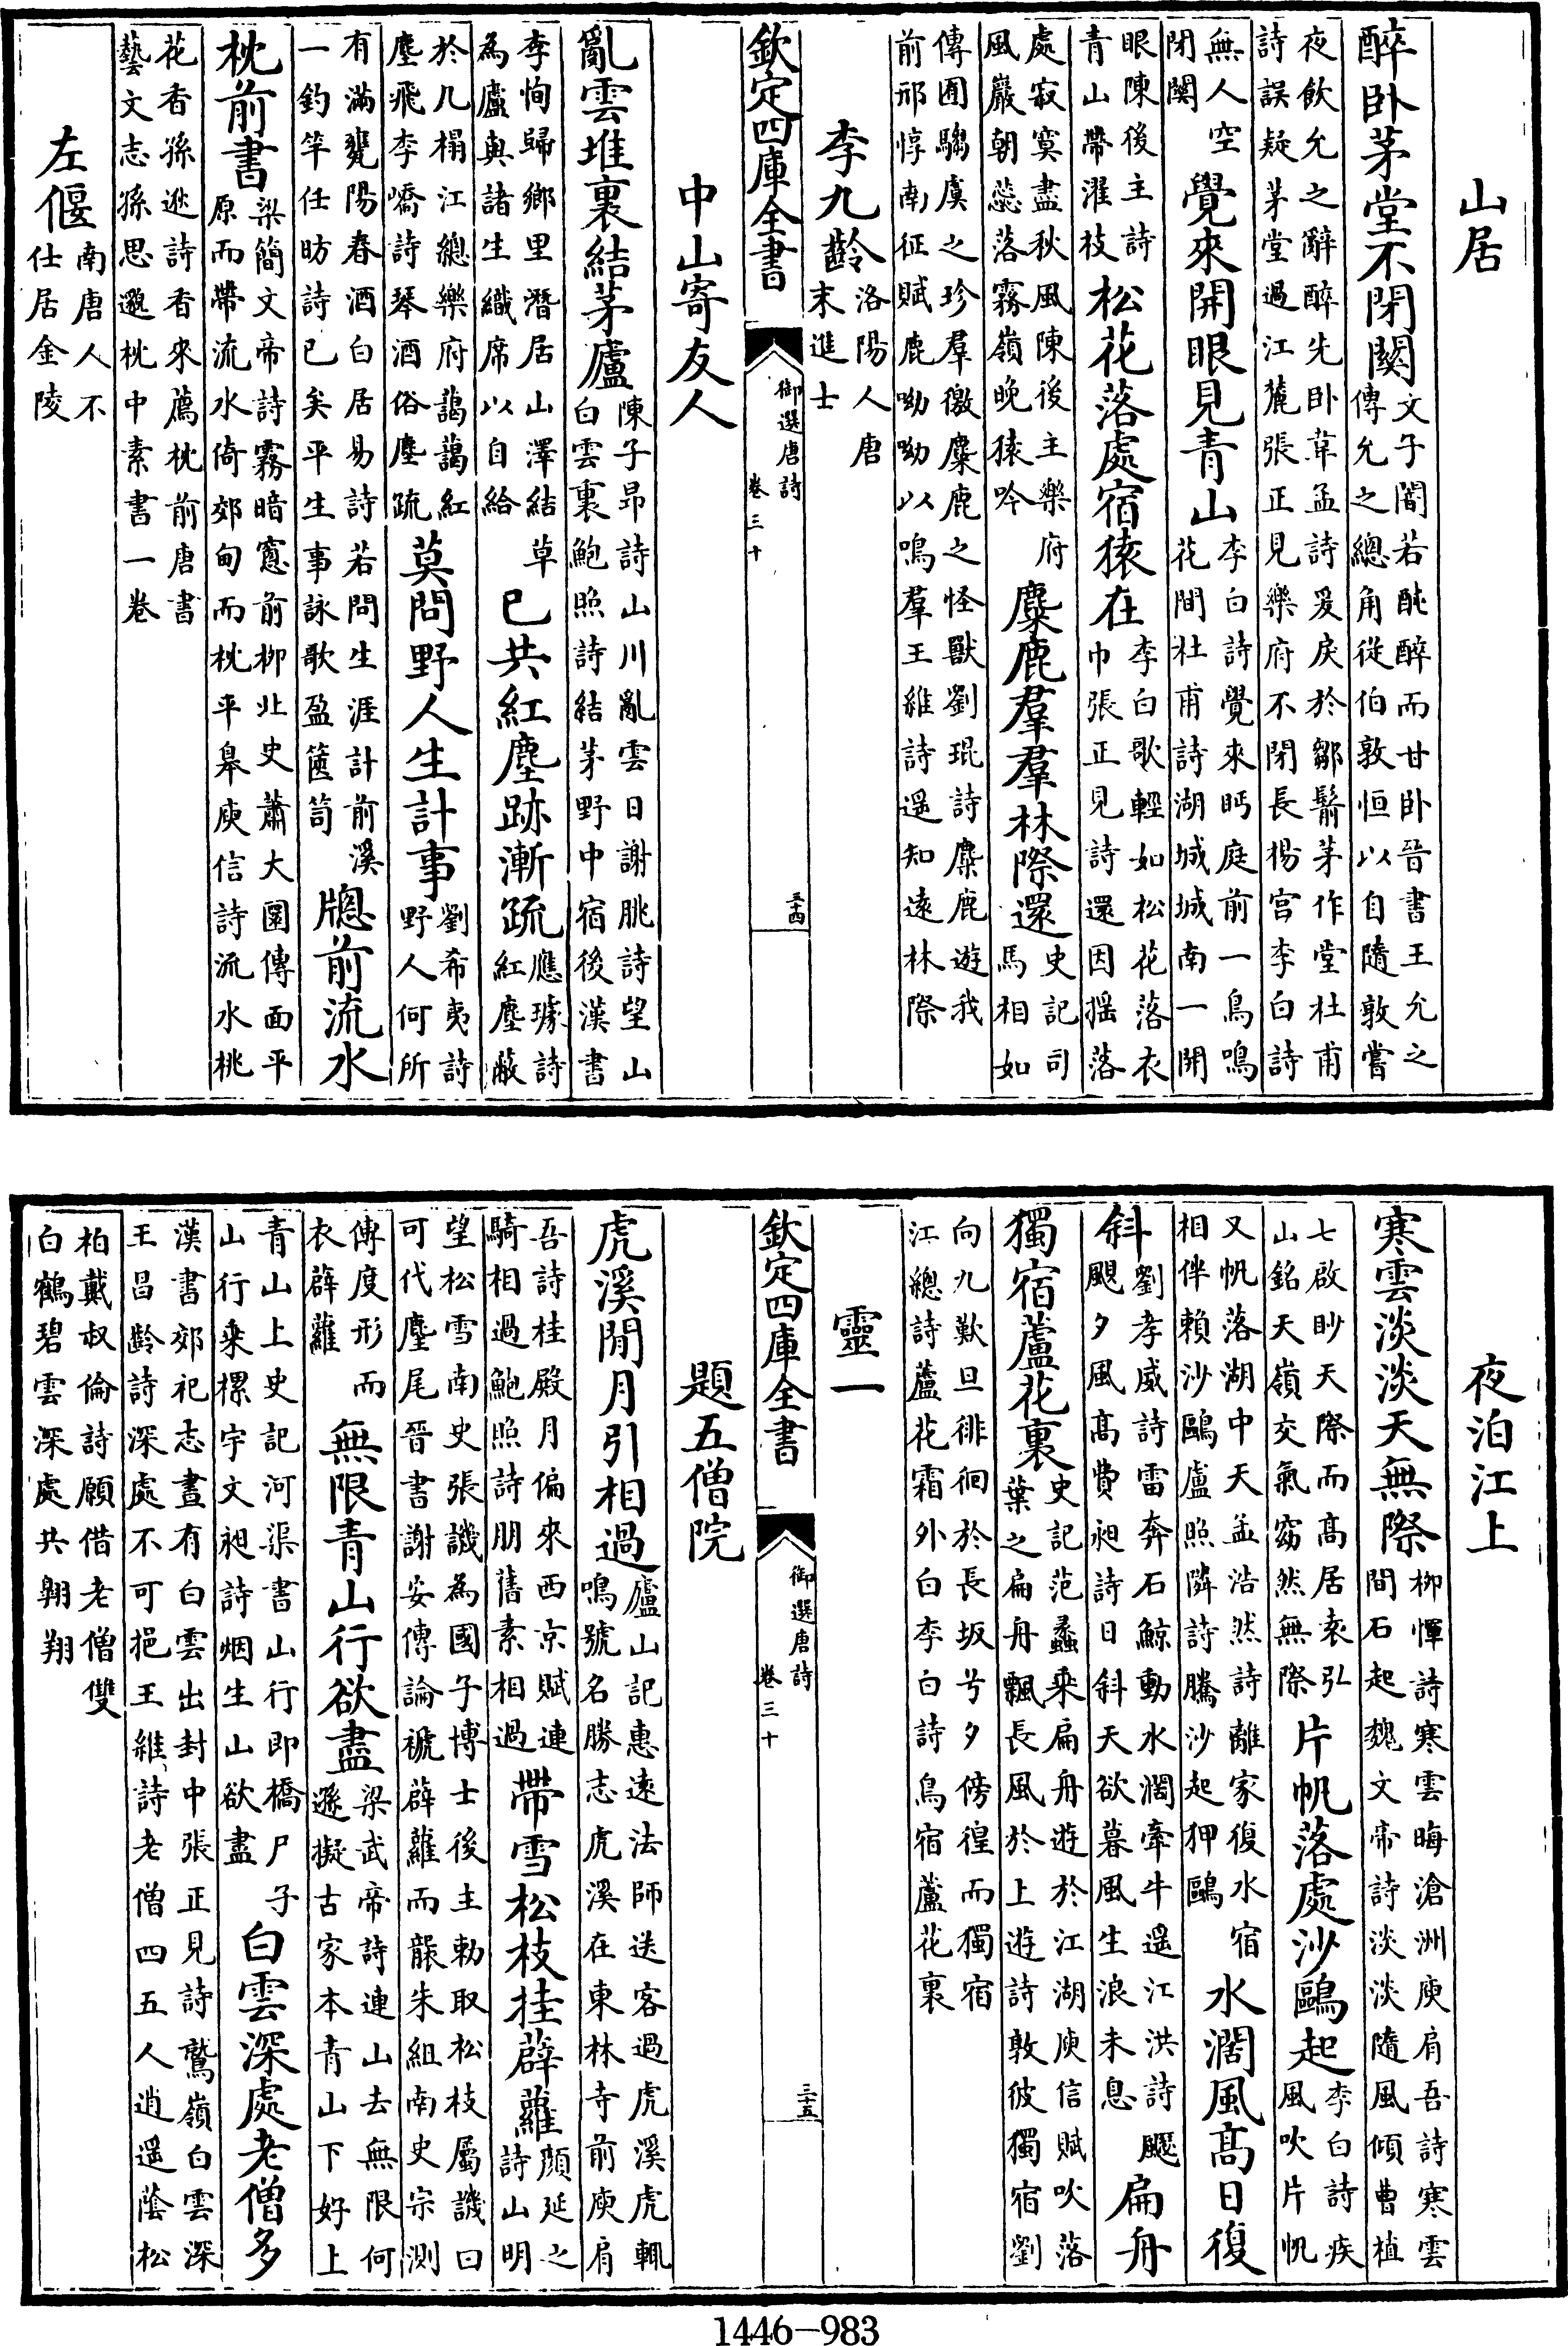 山居
醉卧茅堂不閉關文子闇若酖醉而甘卧晉書王允之傳允之總角從伯敦恒以自隨敦嘗
夜飲允之辭醉先卧韋孟詩爰戾於鄒鬋茅作堂杜甫詩誤疑茅堂過江麓張正見樂府不閉長楊宫李白詩
無人空閉關覺來開眼見青山李白詩覺來眄庭前一鳥鳴花間杜甫詩湖城城南一開
眼陳後主詩青山帶濯枝松花落處宿猿在李白歌輕如松花落衣巾張正見詩還因揺落
處寂寞盡秋風陳後主樂府風巖朝蘂落霧嶺晚猿吟麋鹿羣羣林際還史記司馬相如
傳囿騶虞之珍羣徼麋鹿之怪獸劉琨詩麋鹿遊我前邢惇南征賦鹿呦呦以鳴羣王維詩遥知遠林際
李九齡洛陽人唐末進士
欽定四庫全書
御選唐詩
卷三十
三十四
中山寄友人
亂雲堆裏結茅廬陳子昂詩山川亂雲日謝朓詩望山白雲裏鮑照詩結茅野中宿後漢書
李恂歸鄉里潛居山澤結草為廬與諸生織席以自給已共紅塵跡漸疏應璩詩紅塵蔽
於几榻江總樂府藹藹紅塵飛李嶠詩琴酒俗塵疏莫問野人生計事劉希夷詩野人何所
有滿甕陽春酒白居易詩若問生涯計前溪一釣竿任昉詩已矣平生事詠歌盈篋笥牕前流水
枕前書梁簡文帝詩霧暗窓前柳北史蕭大圜傳面平原而帶流水倚郊甸而枕平臯庾信詩流水桃
花香孫逖詩香來薦枕前唐書藝文志孫思邈枕中素書一卷
左偃南唐人不仕居金陵
夜泊江上
寒雲淡淡天無際柳惲詩寒雲晦滄洲庾肩吾詩寒雲間石起魏文帝詩淡淡隨風傾曹植
七啟眇天際而髙居袁弘山銘天嶺交氣窈然無際片帆落處沙鷗起李白詩疾風吹片帆
又帆落湖中天孟浩然詩離家復水宿相伴賴沙鷗盧照隣詩騰沙起狎鷗水濶風髙日復
斜劉孝威詩雷奔石鯨動水濶牽牛遥江洪詩颸颸夕風髙費昶詩日斜天欲暮風生浪未息扁舟
獨宿蘆花裏史記范蠡乗扁舟遊於江湖庾信賦吹落葉之扁舟飄長風於上遊詩敦彼獨宿劉
向九歎旦徘徊於長坂兮夕傍徨而獨宿江總詩蘆花霜外白李白詩鳥宿蘆花裏
靈一
欽定四庫全書
御選唐詩
卷三十
三十五
題五僧院
虎溪閒月引相過廬山記惠遠法師送客過虎溪虎輒鳴號名勝志虎溪在東林寺前庾肩
吾詩桂殿月偏來西京賦連騎相過鮑照詩朋舊素相過帶雪松枝挂薜蘿顔延之詩山明
望松雪南史張譏為國子博士後主勅取松枝屬譏曰可代麈尾晉書謝安傳論褫薜蘿而襲朱組南史宗測
傳度形而衣薜蘿無限青山行欲盡梁武帝詩連山去無限何遜擬古家本青山下好上
青山上史記河渠書山行即橋尸子山行乗樏宇文昶詩烟生山欲盡白雲深處老僧多
漢書郊祀志晝有白雲出封中張正見詩鷲嶺白雲深王昌齡詩深處不可挹王維詩老僧四五人逍遥蔭松
柏戴叔倫詩願借老僧雙白鶴碧雲深處共翱翔
1446—983